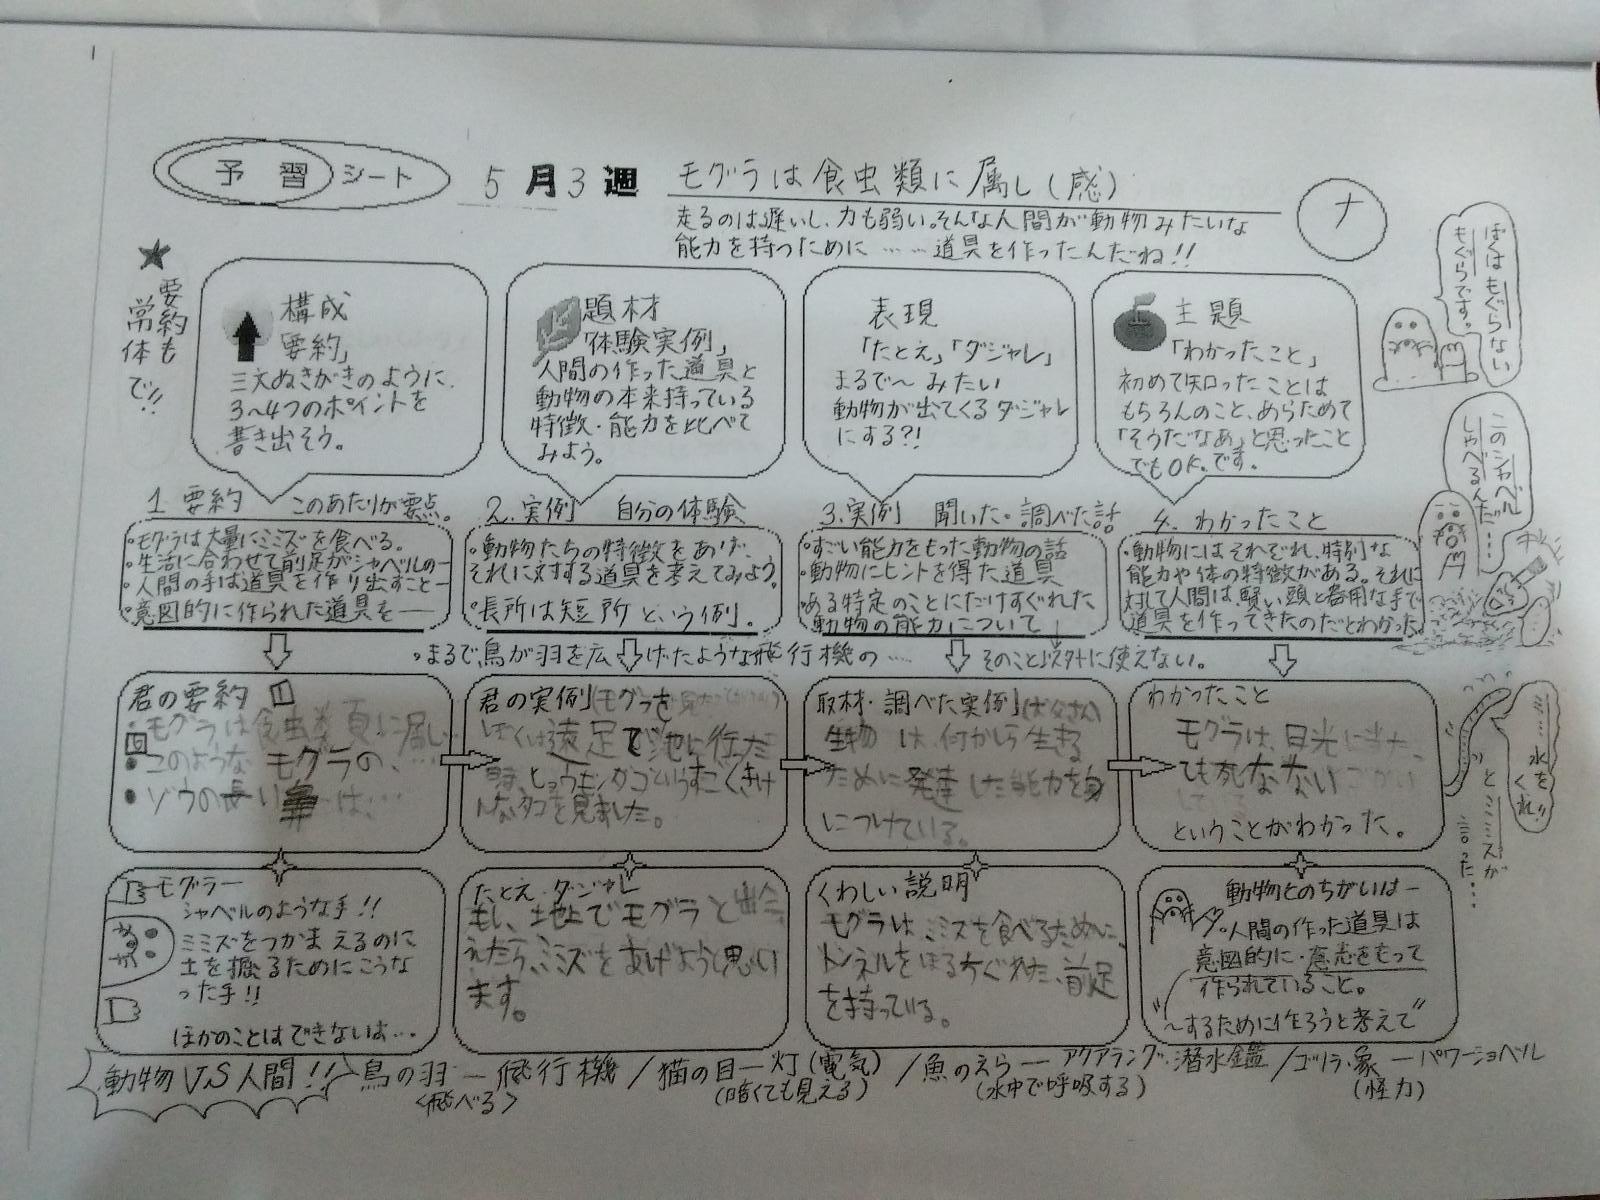 予習シート
5月3週
モグラは食虫類に属し(感)
ナ
走るのは遅いし、力も弱い。そんな人間が動物みたいな
能力を持つために……道具を作ったんだね!!
★要約も
常体で!!
構成
「要約」
三文ぬきがきのように、
3~4つのポイントを
書き出そう。
題材
「体験実例」
人間の作った道具と
動物の本来持っている
特徴・能力を比べて
みよう。
表現
「たとえ」「ダジャレ」
まるで~みたい
動物が出てくるダジャレ
にする?!
主題
「わかったこと」
初めて知ったことは
もちろんのこと、あらためて
「そうだなあ」と思ったこと
でもOK.です。
ぼくはもぐらない
もぐらです。
このシャベル
しゃべるんだ……
1 要約 このあたりが要点。
・モグラは大量にミミズを食べる。
・生活に合わせて前足がシャベルの―
・人間の手は道具を作り出すこと―
・意図的に作られた道具を――
2.実例 自分の体験
・動物たちの特徴をあげ、
それに対する道具を考えてみよう。
・長所は短所という例。
3.実例 聞いた・調べた話
・すごい能力をもった動物の話
・動物にヒントを得た道具
・ある特定のことにだけすぐれた
動物の能力について
4. わかったこと
・動物にはそれぞれ、特別な
能力や体の特徴がある。それに
対して人間は、賢い頭と器用な手で
道具を作ってきたのだとわかった。
・まるで、鳥が羽を広げたような飛行機の……
そのこと以外に使えない。
君の要約
・モグラは食虫類に属し…
このような モグラの…
ゾウの長い鼻は…
君の実例
ぼくは遠足で池に行った
時、ヒョウモンダコというすごくきけ
んなタコを見ました。
取材・調べた実例
生物は、何かしら生きる
ために発達した能力を身
につけている。
わかったこと
モグラは、日光に当た
ても死なない
ということがわかった。
水をくれ!!
とミミズが
言った…
モグラ―
シャベルのような手!!
ミミズをつかまえるのに
土を掘るためにこうな
った手!!
ほかのことはできないよ…
たとえ・ダジャレ
もし、地上でモグラと出会
えたら、ミミズをあげようと思い
ます。
くわしい説明
モグラは、ミミズを食べるために、
トンネルをほるすぐれた、前足
を持っている。
動物とのちがいは―
・人間の作った道具は
意図的に・意志をもって
作られていること。
"~するために作ろうと考えて"
動物VS人間!!
鳥の羽―飛行機/猫の目―灯(電気)/魚のえら―アクアラング・潜水艦/ゴリラ・象―パワーショベル
<飛べる>
(暗くても見える)
(水中で呼吸する)
(怪力)